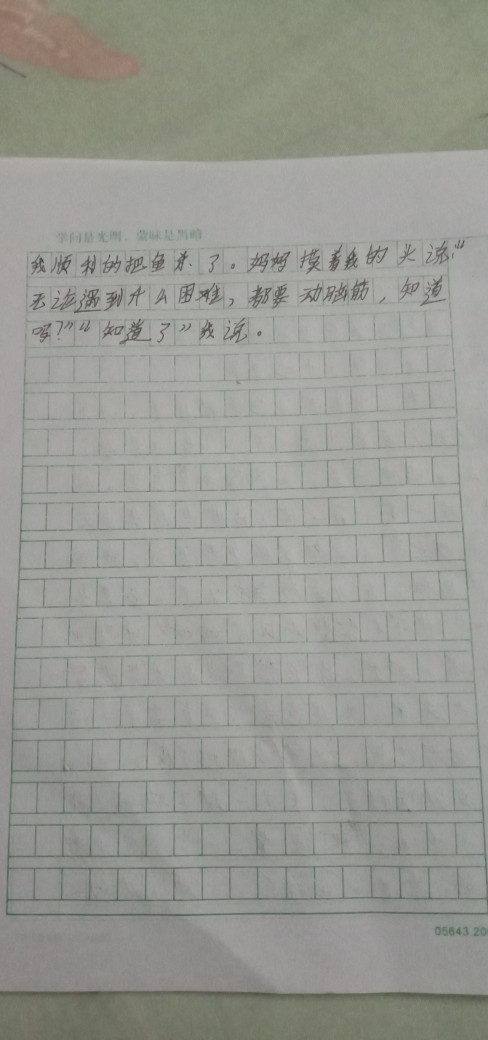 学问是光明，蒙昧是黑暗
我顺利的把鱼杀了。妈妈摸着我的头说:“
无论遇到什么困难，都要动脑筋，知道
吗?”“知道了”我说。
05643.20